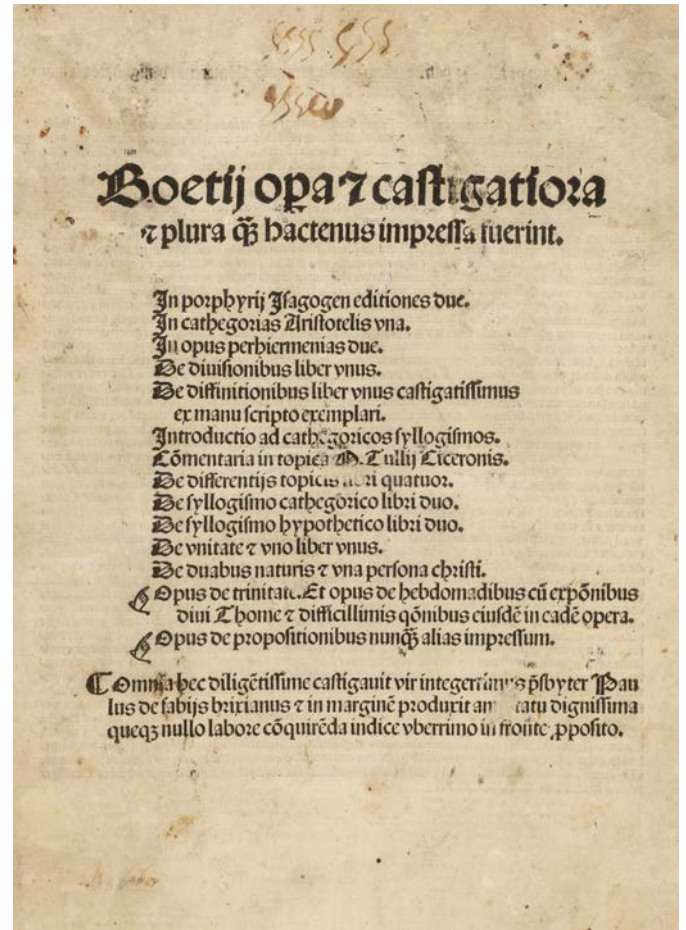 Boetij oꝑa ⁊ castigatiora
⁊ plura q̄ꝫ hactenus impressa fuerint.
In porphyrij Isagogen editiones due.
In cathegorias Aristotelis vna.
In opus perhiermenias due.
De diuisionibus liber vnus.
De diffinitionibus liber vnus castigatissimus
ex manu scripto exemplari.
Introductio ad cathegoricos syllogismos.
Cōmentaria in topica M. Tullij Ciceronis.
De differentijs topicis quatuor.
De syllogismo cathegorico libri duo.
De syllogismo hypothetico libri duo.
De vnitate ⁊ vno liber vnus.
De duabus naturis ⁊ vna persona christi.
Opus de trinitate. Et opus de hebdomadibus cū expōnibus
diui Thome ⁊ difficillimis qōnibus eiusdē in eadē opera.
Opus de propositionibus nunq̄ꝫ alias impressum.
Omnia hec diligētissime castigauit vir integerrimus p̄sbyter Pau
lus de fabijs brixianus ⁊ in marginē produxit dignissima
queqꝫ nullo labore cōquirēda indice vberrimo in fronte ꝓposito.